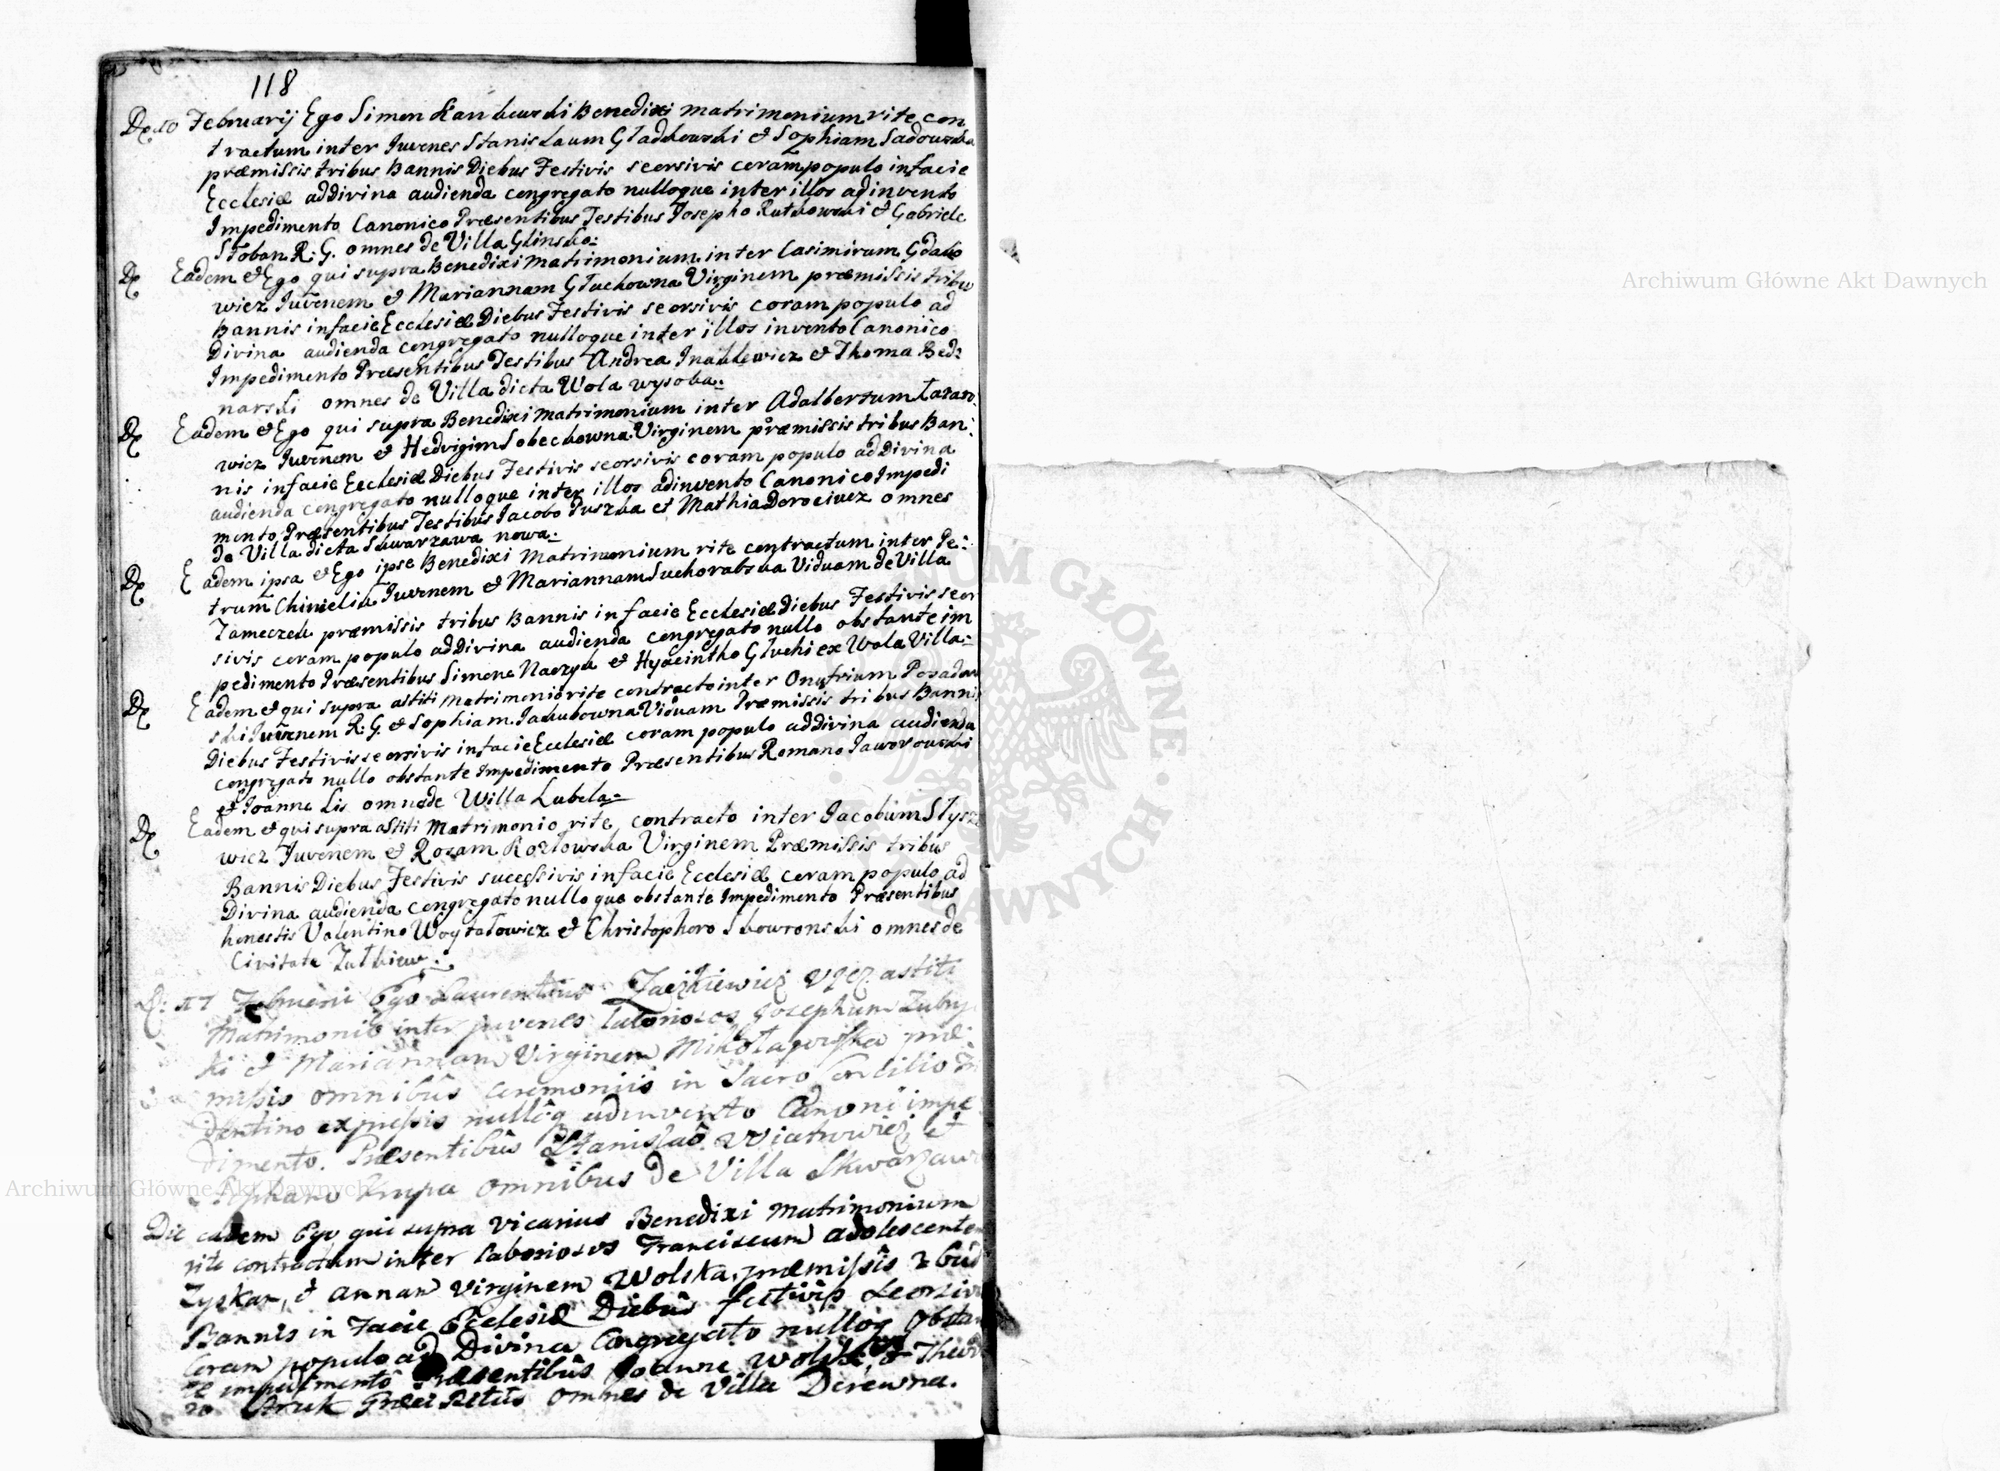 118
Februarij Ego Simon Benedixi matrimonium rite con
tractum inter Iuvenes Stanislaum Gładkowski et Sophiam Sadowska
præmissis tribus Bannis Diebus Festivis seorsivis coram populo in facie
Ecclesiæ ad Divina audienda congregato nulloque inter illos adinvento
Impedimento Canonico Præsentibus Testibus Josepho Rutkowski et Gabriele
Stoban R. G. omnes de Villa Glinsko
Eadem et Ego qui supra Benedixi matrimonium inter Casimirum Gdako
wicz Juvenem et Mariannam Głuchowna Virginem præmissis tribu
Bannis in facie Ecclesiæ Diebus Festivis seorsivis coram populo ad
Divina audienda congregato nulloque inter illos invento Canonico
Impedimento Præsentibus Testibus Andrea et Thoma Bed
narski omnes de Villa dicta Wola wysoka
Eadem et Ego qui supra Benedixi matrimonium inter Adalbertum Łazaro
wicz Juvenem et Hedvigim Sobechowna Virginem præmissis tribus Ban
nis in facie Ecclesiæ Diebus Festivis seorsivis coram populo ad Divina
audienda congregato nulloque inter illos adinvento Canonico Impedi
mento Præsentibus Testibus Jacobo Puszka et Mathia omnes
de Villa dicta Skwarzawa nowa
Eadem ipsa et Ego ipse Benedixi Matrimonium rite contractum inter Pe
trum Chmielik Juvenem et Mariannam Suchorabska Viduam de Villa
Zameczek præmissis tribus Bannis in facie Ecclesiæ diebus Festivis seor
sivis coram populo ad Divina audienda congregato nullo obstante im
pedimento Præsentibus Simone et Hyacintho Gluchi ex Wola Villa
Eadem et qui supra astiti matrimonio rite contracto inter Onufrium Posadow
ski Juvenem R. G. et Sophiam Jakubowna Viduam Præmissis tribus Bannis
Diebus Festivis seorsivis in facie Ecclesiæ coram populo ad Divina audienda
congregato nullo obstante Impedimento Præsentibus Romano Jaworowski
et Joanne Lis omnes de Willa Lubela
Eadem et qui supra astiti Matrimonio rite contracto inter Jacobum
wicz Juvenem et Rozam Kozłowska Virginem Præmissis tribus
Bannis Diebus Festivis sucessivis in facie Ecclesiæ coram populo ad
Divina audienda congregato nulloque obstante Impedimento Præsentibus
honestis Valentino Woytałowicz et Christophoro Skowronski omnes de
Civitate Zułkiew
17 Februarii Ego Laurentius astiti
Matrimonio inter juvenes Laboriosos Josephum Zubry
ki et Mariannam Virginem Mikołajowska præ
missis omnibus ceremoniis in Sacro Concilio
dentino expressis nulloq adinvento Canoni impe
dimento. Præsentibus Stanislao et
Stephano Krupa omnibus de Villa Skwarzawa
Die eadem Ego qui supra vicarius Benedixi Matrimonium
rite contractum inter laboriosos Franciscum adolescente
Zyskar, et annam Virginem Wolska, præmissis
Bannis in Facie Ecclesiæ Diebus festivis
Coram populo ad Divina Congregato nulloq Obstan
te impedimento Præsentibus Joanne Wolski et Theodo
ro omnes de Villa Derewna.
Archiwum Główne Akt Dawnych
Archiwum Główne Akt Dawnych